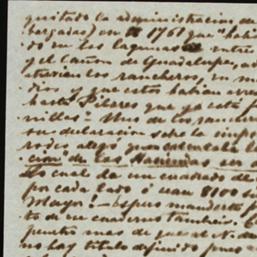 quitado la administracion de
bargadas) en 1761 que "habi
do en las lagunas entre
y el Cañon de Guadalupe, ad
travien los rancheros, en m
dios y que estos habian arre
hasta Pilares que ya esta f
millas"- Uno de los ranche
su declaracion sobre la impo
rodes alegó que
cion de las Haciendas en
Lo cual da un cuadrado de
por cada lado ó sean 8100 s
Mayor! - Espero mandarte p
to de mi cuaderno tambien. C
puntos mas de que el N. de
no hay titulo definido pues